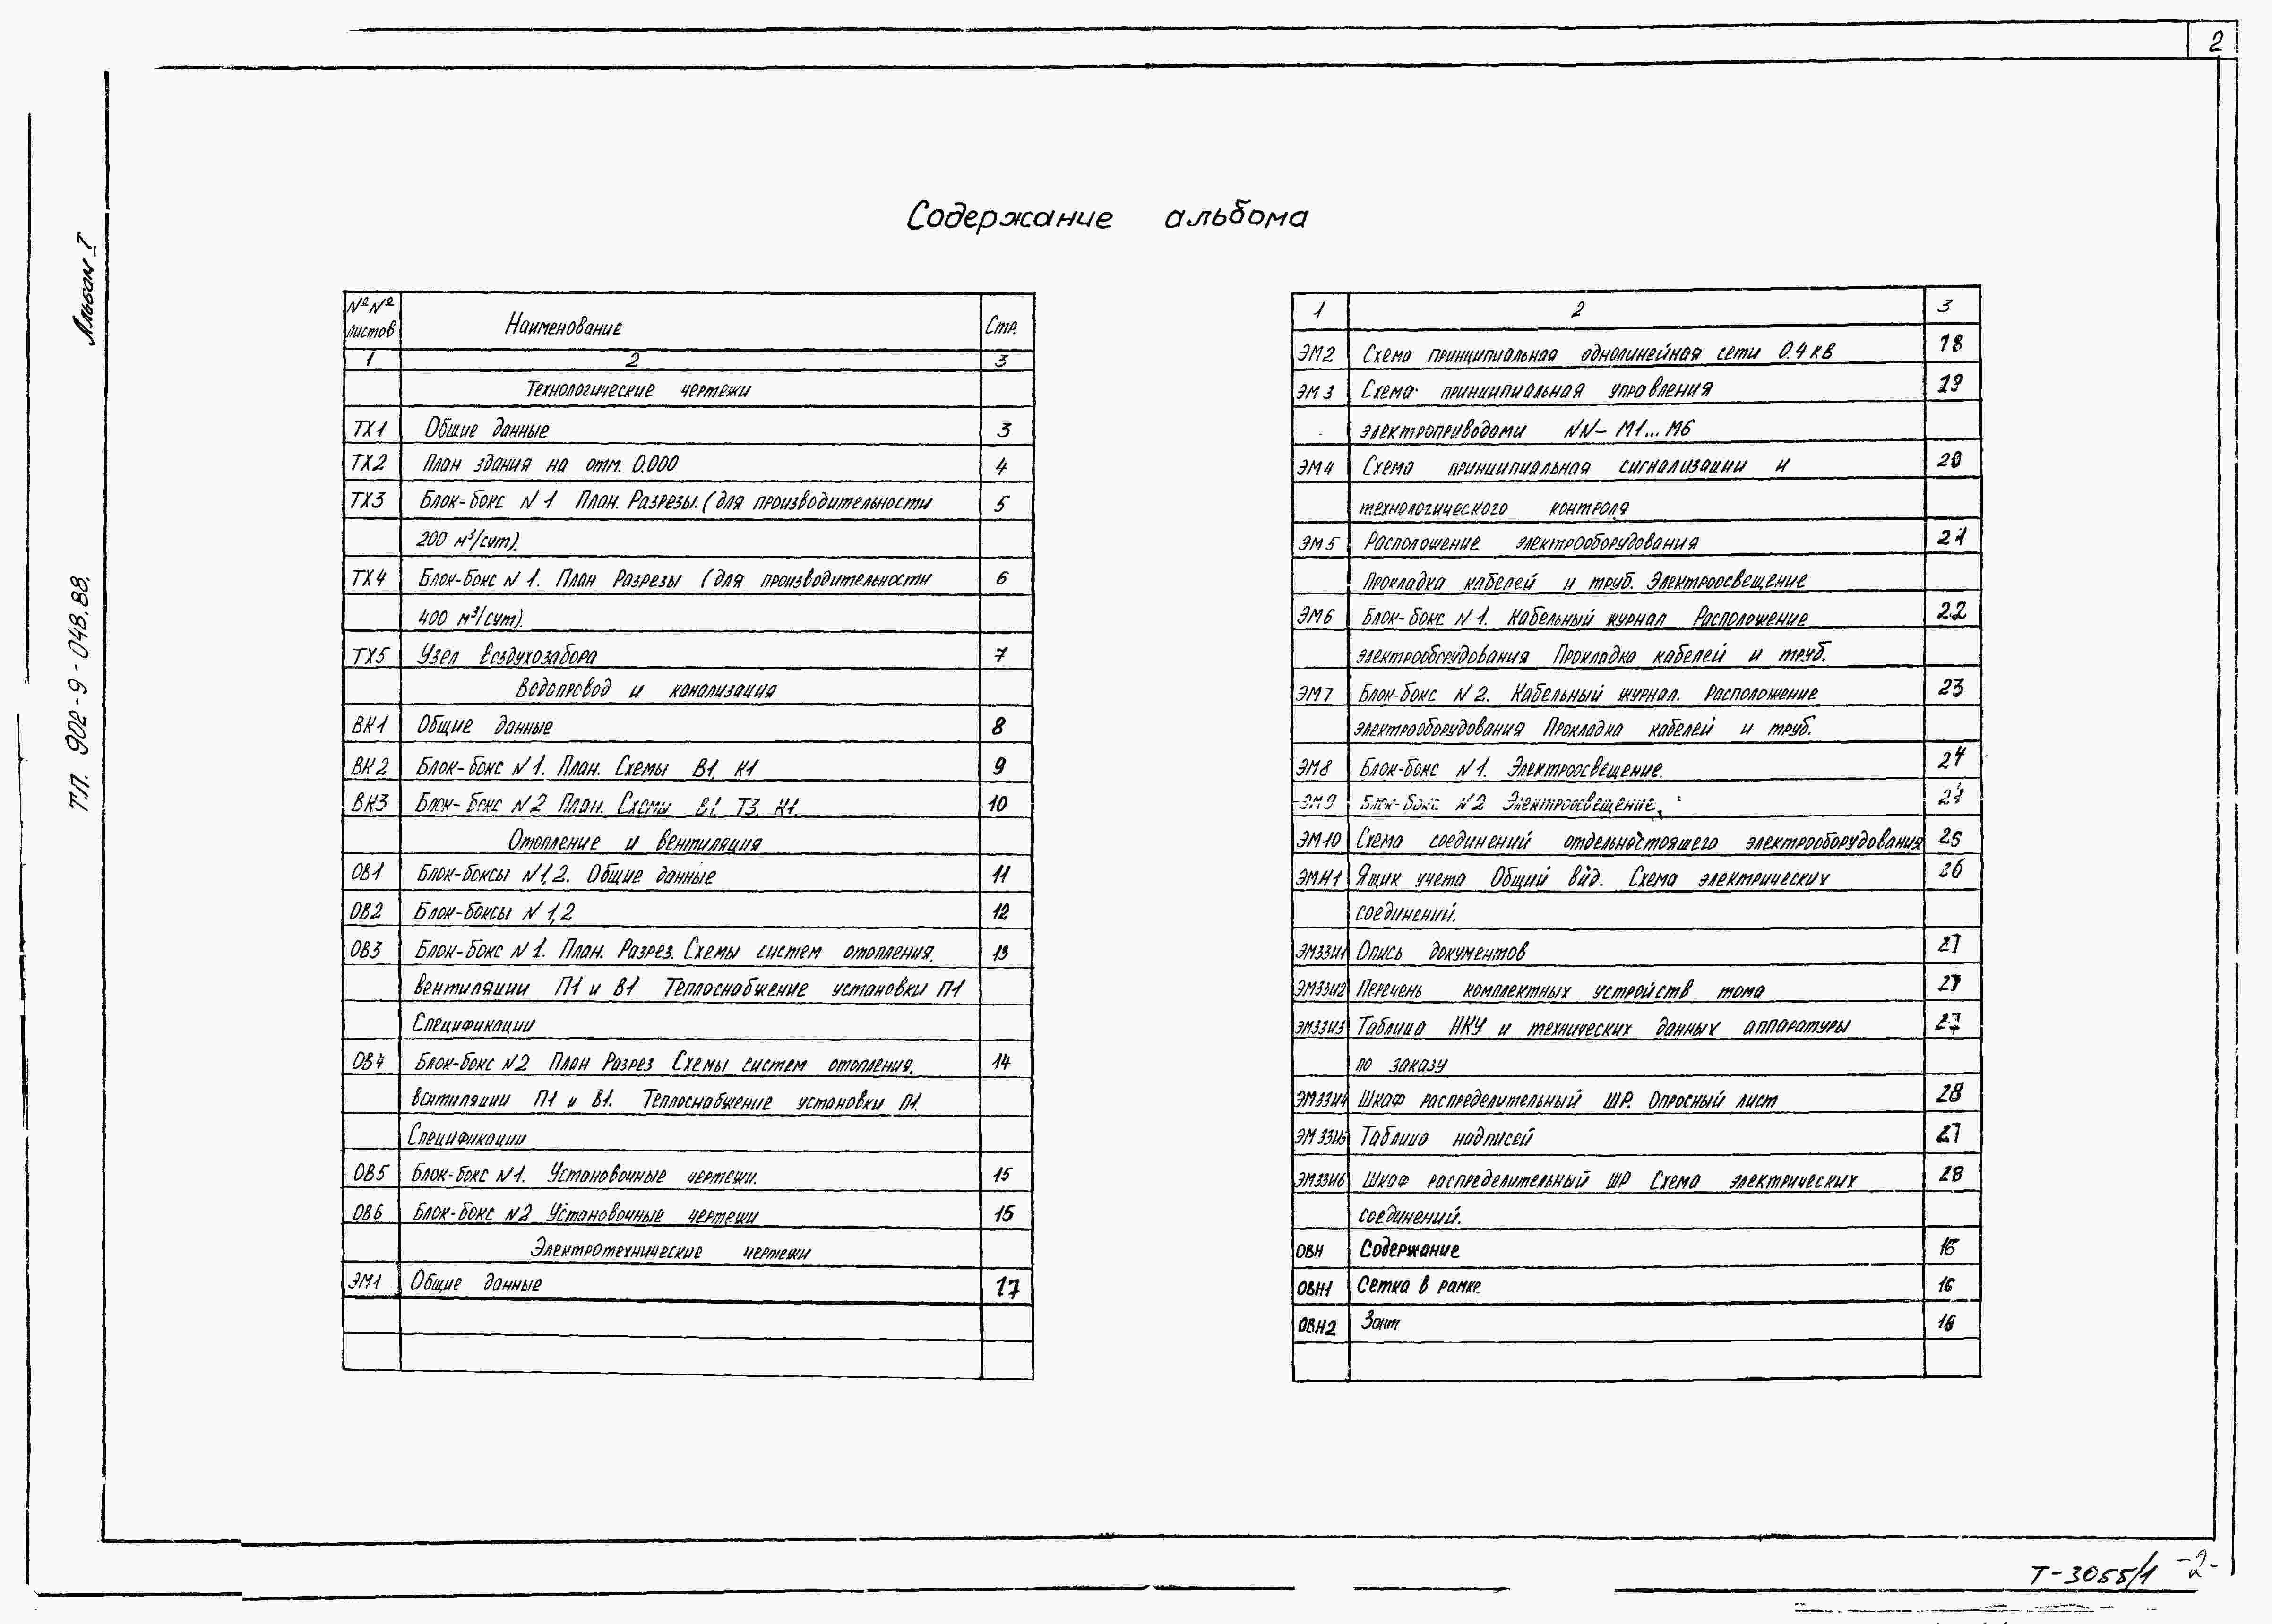 2
Содержание альбома
Альбом I
Т.П. 902-9-048.88.
№№ листов Наименование Стр.
1 2 3
Технологические чертежи
ТХ1 Общие данные 3
ТХ2 План здания на отм. 0.000 4
ТХ3 Блок-бокс N1 План. Разрезы. (для производительности 5
200 м³/сут).
ТХ4 Блок-бокс N1. План Разрезы (для производительности 6
400 м³/сут).
ТХ5 Узел воздухозабора 7
Водопровод и канализация
ВК1 Общие данные 8
ВК2 Блок-бокс N1. План. Схемы В1 К1 9
ВК3 Блок-бокс N2 План. Схемы В1. Т3. К1. 10
Отопление и вентиляция
ОВ1 Блок-боксы N1,2. Общие данные 11
ОВ2 Блок-боксы N1,2 12
ОВ3 Блок-бокс N1. План. Разрез. Схемы систем отопления, 13
вентиляции П1 и В1 Теплоснабжение установки П1
Спецификации
ОВ4 Блок-бокс N2 План Разрез Схемы систем отопления, 14
вентиляции П1 и В1. Теплоснабжение установки П1.
Спецификации
ОВ5 Блок-бокс N1. Установочные чертежи. 15
ОВ6 Блок-бокс N2 Установочные чертежи 15
Электротехнические чертежи
ЭМ1 Общие данные 17
1 2 3
ЭМ2 Схема принципиальная однолинейная сети 0.4 кв 18
ЭМ3 Схема принципиальная управления 19
электроприводами NN- М1...М6
ЭМ4 Схема принципиальная сигнализации и 20
технологического контроля
ЭМ5 Расположение электрооборудования 21
Прокладка кабелей и труб. Электроосвещение
ЭМ6 Блок-бокс N1. Кабельный журнал Расположение 22
электрооборудования Прокладка кабелей и труб.
ЭМ7 Блок-бокс N2. Кабельный журнал. Расположение 23
электрооборудования Прокладка кабелей и труб.
ЭМ8 Блок-бокс N1. Электроосвещение. 24
ЭМ9 Блок-бокс N2 Электроосвещение.
ЭМ10 Схема соединений отдельностоящего электрооборудования 25
ЭМН1 Ящик учета Общий вид. Схема электрических 26
соединений.
ЭМЗЗИ1 Опись документов 27
ЭМЗЗИ2 Перечень комплектных устройств тома 27
ЭМЗЗИ3 Таблица НКУ и технических данных аппаратуры 27
по заказу
ЭМЗЗИ4 Шкаф распределительный ШР. Опросный лист 28
ЭМЗЗИ5 Таблица надписей 27
ЭМЗЗИ6 Шкаф распределительный ШР Схема электрических 28
соединений.
ОВН Содержание 16
ОВН1 Сетка в рамке 16
ОВН2 Зонт 16
Т-3055/1 -2-